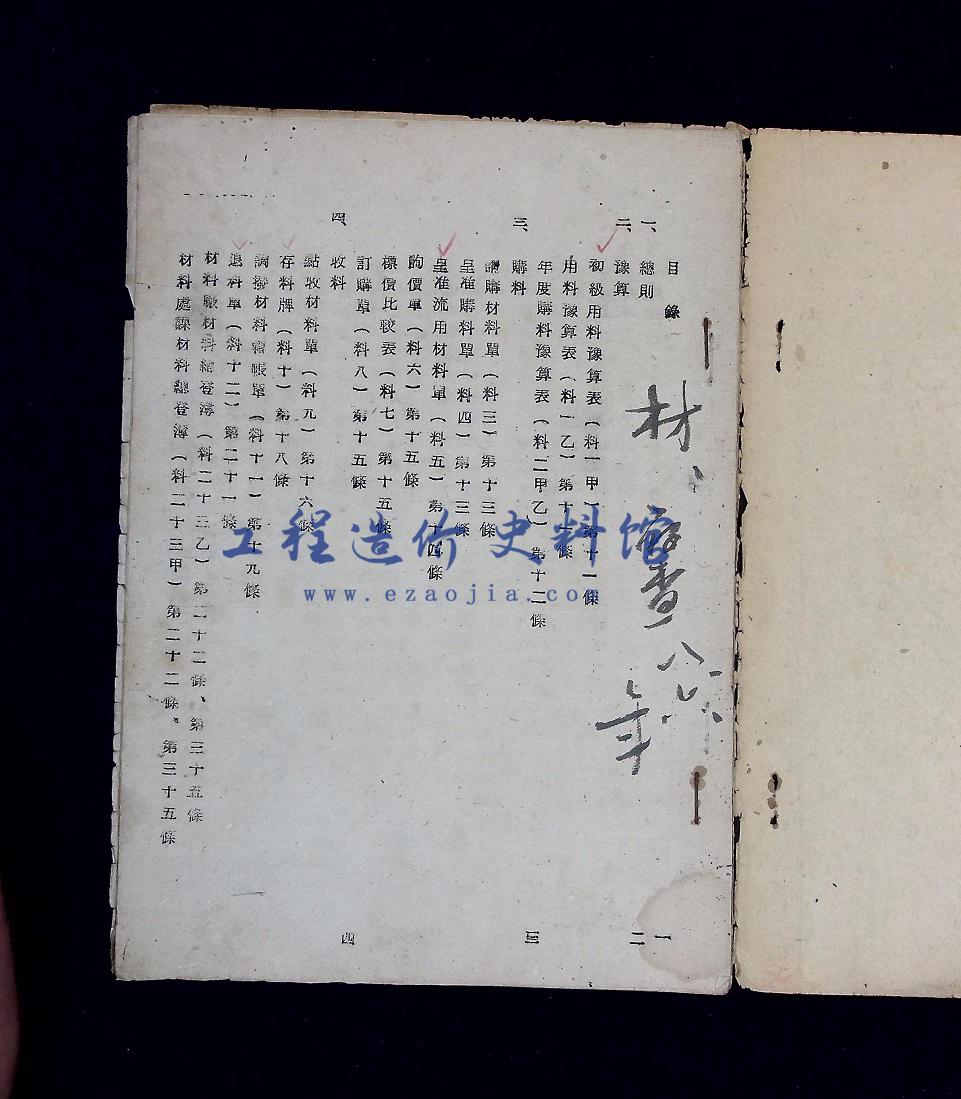 目錄
一、總則 一
二、豫算 二
初級用料豫算表（料一甲）第十一條
用料豫算表（料一乙）第十一條
年度購料豫算表（料二甲乙）第十二條
三、購料 三
請購材料單（料三）第十三條
呈准購料單（料四）第十三條
呈准流用材料單（料五）第十四條
詢價單（料六）第十五條
標價比較表（料七）第十五條
訂購單（料八）第十五條
四、收料 四
點收材料單（料九）第十六條
存料牌（料十）第十八條
調撥材料寄帳單（料十一）第十九條
退料單（料十二）第二十一條
材料廠材料總登簿（料二十三乙）第二十二條、第三十五條
材料處課材料總登簿（料二十三甲）第二十二條、第三十五條
材、
年
工程造价史料馆
www.ezaojia.com